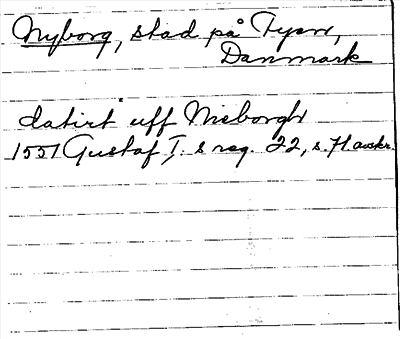 Nyborg, stad på Fyen,
Danmark
datirt uff Nieborgh
1557 Gustaf I. s reg. 22, s. 71 avskr.